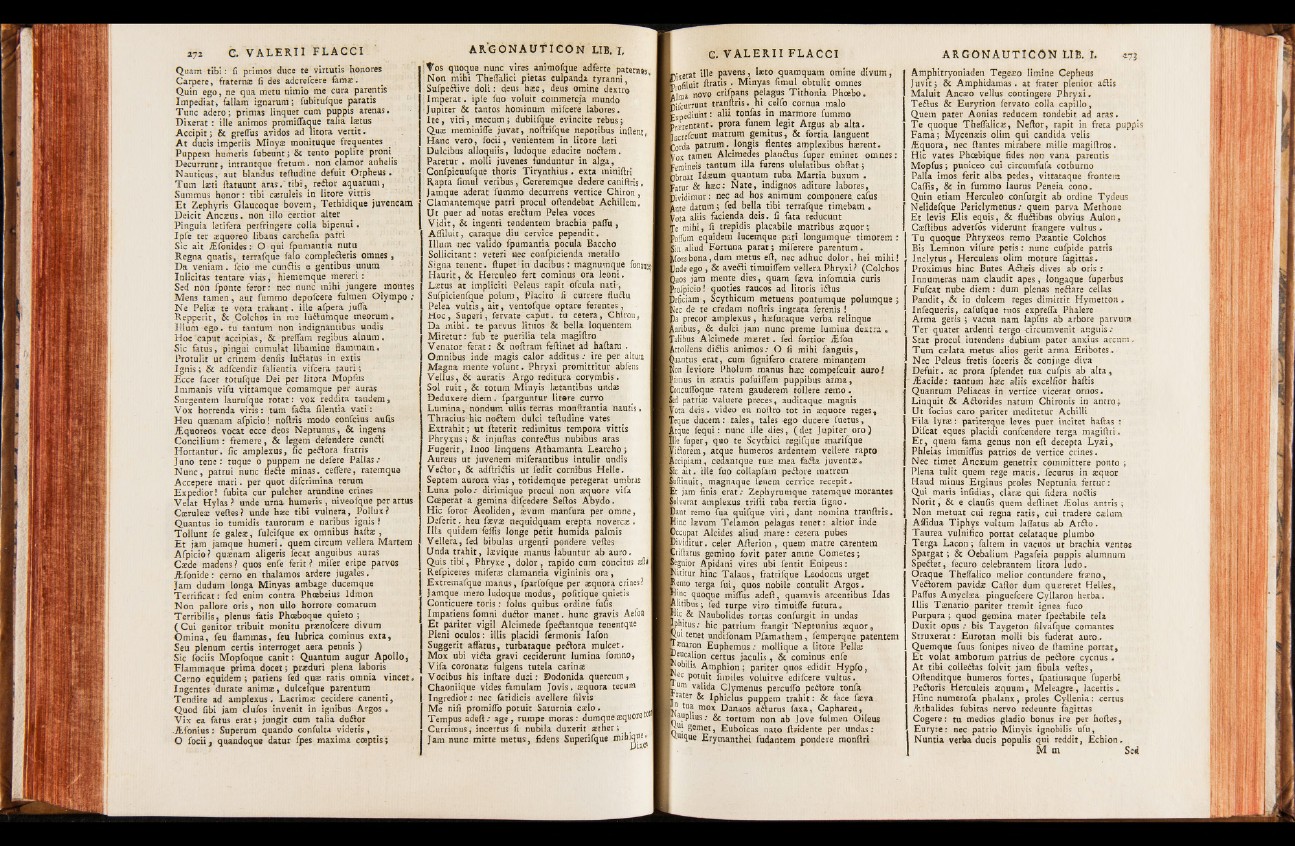 272 C. VALERII FLACCI
Quam tibi: si primos duce te virtutis honores
Carpere, fraternæ si des adcrescere famæ.
Quin ego, ne qua metu nimio me cura parentis
Impediat, fallam ignarum; subitusque paratis
Tunc adero; primas linquet cum puppis arenas.
Dixerat: ille animos promissaque talia lætus
Accipit; & gressus avidos ad litora vertit.
At ducis imperiis Minyæ monituque frequentes
Puppem humeris subeunt; & tento poplite proni
Decurrunt, intrantque fretum. non clamor anhelis
Nauticus, aut blandus testudine defuit Orpheus.
Tum læti statuunt aras. tibi, rector aquarum,
Summus honor: tibi cæruleis in litore vittis
Et Zephyris Glaucoque bovem, Tethidique juvencam
Deicit Ancæus. non illo certior alter
Pinguia letifera perfringere colla bipenni.
Ipse ter æquoreo libans carchesia patri
Sic ait Æsonides: O qui spumantia nutu
Regna quatis, terrasque salo complecteris omnes,
Da veniam. scio me cunctis e gentibus unum
Inlicitas tentare vias, hiememque mereri:
Sed non sponte feror: nec nunc mihi jungere montes
Mens tamen, aut summo deposcere fulmen Olympo:
Ne Peliæ te vota trahant. ille aspera jussa
Repperit, & Colchos in me luctumque meorum.
Illum ego. tu tantum non indignantibus undis
Hoc caput accipias, & pressam regibus alnum.
Sic fatus, pingui cumulat libamine flammam.
Protulit ut crinem densis luctatus in extis
Ignis; & adscendit salientia viscera tauri;
Ecce sacer totusque Dei per litora Mopsus
Immanis visu vittamque comamque per auras
Surgentem laurusque rotat: vox reddita tandem,
Vox horrenda viris: tum facta silentia vati:
Heu quænam aspicio! nostris modo conscius ausis
Æquoreos vocat ecce deos Neptunus, & ingens
Concilium: fremere, & legem defendere cuncti
Hortantur. sic amplexus, sic pectora fratris
Juno tene: tuque o puppem ne desere Pallas:
Nunc, patrui nunc flecte minas. cessere, ratemque
Accepere mari. per quot discrimina rerum
Expedior! subita cur pulcher arundine crines
Velat Hylas? unde urna humeris, niveosque per artus
Cæruleæ vestes? unde hæc tibi vulnera, Pollux?
Quantus io tumidis taurorum e naribus ignis!
Tollunt se galeæ, sulcisque ex omnibus hastæ,
Et jam jamque humeri. quem circum vellera Martem
Aspicio? quænam aligeris secat anguibus auras
Cæde madens? quos ense ferit? miser eripe parvos
Æsonide: cerno en thalamos ardere jugales.
Jam dudum longa Minyas ambage ducemque
Terrificat: sed enim contra Phœbeius Idmon
Non pallore oris, non ullo horrore comarum
Terribilis, plenus fatis Phœboque quieto;
(Cui genitor tribuit monitu prænoscere divum
Omina, seu flammas, seu lubrica cominus exta,
Seu plenum certis interroget aera pennis)
Sic sociis Mopsoque canit: Quantum augur Apollo,
Flammaque prima docet; præduri plena laboris
Cerno equidem; patiens sed quæ ratis omnia vincet.
Ingentes durate animæ, dulcesque parentum
Tendite ad amplexus. Lacrimæ cecidere canenti,
Quod sibi jam clusos invenit in ignibus Argos.
Vix ea fatus erat; jungit cum talia ductor
Æsonius: Superum quando consulta videtis,
O socii, quandoque datur spes maxima cœptis;
ARGONAUTICON LIB. I.
Vos quoque nunc vires animosque adferte paternos,
Non mihi Thessalici pietas culpanda tyranni,
Suspective doli: deus hæc, deus omine dextro
Imperat. ipse suo voluit commercia mundo
Jupiter & tantos hominum miscere labores.
Ire, viri, mecum; dubiisque evincite rebus;
Quæ meminisse juvat, nostrisque nepotibus instent,
Hanc vero, socii, venientem in litore læti
Dulcibus alloquiis, ludoque educite noctem.
Paretur. molli juvenes funduntur in alga,
Conspicuusque thoris Tirynthius. exta ministri
Rapta simul veribus, Cereremque dedere canistris.
Jamque aderat summo decurrens vertice Chiron,
Clamantemque patri procul ostendebat Achillem.
Ut puer ad notas erectum Pelea voces
Vidit, & ingenti tendentem brachia passu,
Assiluit, caraque diu cervice pependit.
Illum nec valido spumantia pocula Baccho
Sollicitant: veteri nec conspicienda metallo
Signa tenent. stupet in ducibus: magnumque sonantes
Haurit, & Herculeo fert cominus ora leoni.
Lætus at impliciti Peleus rapit oscula nati,
Suspiciensque polum, Placito si currere fluctu
Pelea vultis, ait, ventosque optare ferentes,
Hoc, Superi, servate caput. tu cetera, Chiron,
Da mihi. te parvus lituos & bella loquentem
Miretur: sub te puerilia tela magistro
Venator ferat: & nostram festinet ad hastam.
Omnibus inde magis calor additus: ire per altum
Magna mente volunt. Phryxi promittitur absens
Vellus, & auratis Argo reditura corymbis.
Sol ruit, & totum Minyis lætantibus undæ
Deduxere diem. sparguntur litore curvo
Lumina, nondum ullis terras monstrantia nautis.
Thracius hic noctem dulci testudine vates
Extrahit; ut steterit redimitus tempora vittis
Phryxus; & injustas contectus nubibus aras
Fugerit, Inoo linquens Athamanta Learcho;
Aureus ut juvenem miserantibus intulit undis
Vector, & adstrictis ut sedit cornibus Helle.
Septem aurora vias, totidemque peregerat umbras
Luna polo: dirimique procul non æquore visa
Cœperat a gemina discedere Sestos Abydo.
Hic soror Æeoliden, ævum mansura per omne,
Deserit. heu sævæ nequidquam erepta novercæ.
Illa quidem fessis longe petit humida palmis
Vellera, sed bibulas urgenti pondere vestes
Unda trahit, lævique manus labuntur ab auro.
Quis tibi, Phryxe, dolor, rapido cum concitus æstu
Respiceres miseræ clamantia virginis ora,
Extremasque manus, sparsosque per æquora crines?
Jamque mero ludoque modus, positique quietis
Conticuere toris: solus quibus ordine fusis
Impatiens somni ductor manet. hunc gravis Aeson
Et pariter vigil Alcimede spectantque tenentque
Pleni oculos: illis placidi sermonis Iason
Suggerit affatus, turbataque pectora mulcet.
Mox ubi victa gravi ceciderunt lumina somno,
Visa coronatæ fulgens tutela carinæ
Vocibus his instare duci: Dodonida quercum,
Chaoniique vides famulam Jovis. æquora tecum
Ingredior: nec fatidicis avellere silvis
Me nisi promisso potuit Saturnia cælo.
Tempus adest: age, rumpe moras: dumque æquore toto
Currimus, incertus si nubila duxerit æther;
Jam nunc mitte metus, fidens Superisque mihique.
Dixe-
C. VALERII FLACCI
Dixerat ille pavens, læto quamquam omine divum,
Prosiluit stratis. Minyas simul obtulit omnes
Alma novo crispans pelagus Tithonia Phœbo.
Discurrunt transtris. hi celso cornua malo
Expediunt: alii tonsas in marmore summo
Prætentant. prora funem legit Argus ab alta.
Increscunt matrum gemitus, & fortia languent
Corda patrum. longis flentes amplexibus hærent.
Vox tamen Alcimedes planctus super eminet omnes:
Femineis tantum illa furens ululatibus obstat;
Obruat Idæum quantum tuba Martia buxum.
Fatur & hæc: Nate, indignos aditure labores,
Dividimur: nec ad hos animum componere casus
Ante datum; sed bella tibi terrasque timebam.
Vota aliis facienda deis. si fata reducunt
Te mihi, si trepidis placabile matribus æquor;
Possum equidem lucemque pati longumque timorem:
Sin aliud Fortuna parat; miserere parentum.
Mors bona, dum metus est, nec adhuc dolor. hei mihi!
Unde ego, & avecti timuissem vellera Phryxi? (Colchos
Quos jam mente dies, quam sæva insomnia curis
Prospicio! quoties raucos ad litoris ictus
Deficiam, Scythicum metuens pontumque polumque;
Nec de te credam nostris ingrata serenis!
Da precor amplexus, hæsuraque verba relinque
Auribus, & dulci jam nunc preme lumina dextra.
Talibus Alcimede mæret. sed fortior Æson
Attollens dictis animos: O si mihi sanguis,
Quantus erat, cum signifero cratere minantem
Non leviore Pholum manus hæc compescuit auro!
Primus in æratis posuissem puppibus arma,
Concussoque ratem gauderem tollere remo.
Sed patriæ valuere preces, auditaque magnis
Vota deis. video en nostro tot in æquore reges,
Teque ducem: tales, tales ego ducere suetus,
Atque sequi: nunc ille dies, (det Jupiter oro)
Ille super, quo te Scythici regisque marisque
Victorem, atque humeros ardentem vellere rapto
Accipiam, cedantque tuæ mea facta juventæ.
Sic ait. ille suo collapsam pectore matrem
Sustinuit, magnaque senem cervice recepit.
Et jam finis erat: Zephyrumque ratemque morantes
Solverat amplexus tristi tuba tertia signo.
Dant remo sua quisque viri, dant nomina transtris.
Hinc lævum Telamon pelagus tenet: altior inde
Occupat Alcides aliud mare: cetera pubes
Dividitur. celer Asterion, quem matre carentem
Cristatus gemino fovit pater amne Cometes;
Segnior Apidani vires ubi sentit Enipeus:
Nititur hinc Talaus, fratrisque Leodocus urget
Remo terga sui, quos nobile contulit Argos.
Hinc quoque missus adest, quamvis arcentibus Idas
Alitibus, sed turpe viro timuisse futura.
Hic & Naubolides tortas consurgit in undas
Iphitus: hic patrium frangit Neptunius æquor,
Qui tenet undisonam Psamathem, semperque patentem
Tænaron Euphemus: mollique a litore Pellæ
Deucalion certus jaculis, & cominus ense
Nobilis Amphion; pariter quos edidit Hypso,
Nec potuit similes voluitve ediscere vultus.
Tum valida Clymenus percusso pectore tonsa
Frater & Iphiclus puppem trahit: & face sæva
In tua mox Danaos acturus saxa, Caphareu,
Nauplius: & tortum non ab Jove fulmen Oileus
Qui gemet, Euboicas nato stridente per undas:
Quique Erymanthei sudantem pondere monstri
ARGONAUTICON LIB. I. 273
Amphitryoniaden Tegeæo limine Cepheus
Juvit; & Amphidamas. at frater plenior actis
Maluit Ancæo vellus contingere Phryxi.
Tectus & Eurytion servato colla capillo,
Quem pater Aonias reducem tondebit ad aras.
Te quoque Thessalicæ, Nestor, rapit in freta puppis
Fama; Mycenæis olim qui candida velis
Æquora, nec stantes mirabere mille magistros.
Hic vates Phœbique fides non vana parentis
Mopsus; puniceo cui circumfusa cothurno
Palla imos ferit alba pedes, vittataque frontem
Cassis, & in summo laurus Peneia cono.
Quin etiam Herculeo consurgit ab ordine Tydeus
Nelidesque Periclymenus: quem parva Methone
Et levis Elis equis, & fluctibus obvius Aulon,
Cæstibus adversos viderunt frangere vultus.
Tu quoque Phryxeos remo Pæantie Colchos
Bis Lemnon visure petis: nunc cuspide patris
Inclytus, Herculeas olim moture sagittas.
Proximus hinc Butes Actæis dives ab oris:
Innumeras nam claudit apes, longaque superbus
Fuscat nube diem: dum plenas nectare cellas
Pandit, & in dulcem reges dimittit Hymetton.
Insequeris, casusque tuos expressa Phalere
Arma geris; vacua nam lapsus ab arbore parvum
Ter quater ardenti tergo circumvenit anguis:
Stat procul intendens dubium pater anxius arcum.
Tum cælata metus alios gerit arma Eribotes.
Nec Peleus fretis soceris & conjuge diva
Defuit. ac prora splendet tua cuspis ab alta,
Æacide: tantum hæc aliis excelsior hastis
Quantum Peliacas in vertice vicerat ornos.
Linquit & Actorides natum Chironis in antro;
Ut socius caro pariter meditetur Achilli
Fila lyræ: pariterque leves puer incitet hastas:
Discat eques placidi conscendere terga magistri.
Et, quem fama genus non est decepta Lyæi,
Phleias immissus patrios de vertice crines.
Nec timet Ancæum genetrix committere ponto;
Plena tulit quem rege maris. securus in æquor
Haud minus Erginus proles Neptunia fertur:
Qui maris insidias, claræ qui sidera noctis
Norit, & e clausis quem destinet Æolus antris;
Non metuat cui regna ratis, cui tradere cælum
Assidua Tiphys vultum lassatus ab Arcto.
Taurea vulnifico portat celataque plumbo
Terga Lacon; saltem in vacuos ut brachia ventos
Spargat; & Oebalium Pagaseia puppis alumnum
Spectet, securo celebrantem litora ludo.
Oraque Thessalico melior contundere fræno,
Vectorem pavidæ Castor dum quæreret Helles,
Passus Amyclæa pinguescere Cyllaron herba.
Illis Tænario pariter tremit ignea fuco
Purpura; quod gemina mater spectabile tela
Duxit opus: bis Taygeton silvasque comantes
Struxerat: Eurotan molli bis fuderat auro.
Quemque suus sonipes niveo de stamine portat,
Et volat amborum patrius de pectore cycnus.
At tibi collectas solvit jam fibula vestes,
Ostenditque humeros fortes, spatiumque superbi
Pectoris Herculeis æquum, Meleagre, lacertis.
Hinc numerosa phalanx, proles Cyllenia: certus
Æthalides subitas nervo redeunte sagittas
Cogere: tu medios gladio bonus ire per hostes,
Euryte: nec patrio Minyis ignobilis usu,
Nuntia verba ducis populis qui reddit, Echion.
M m Sed